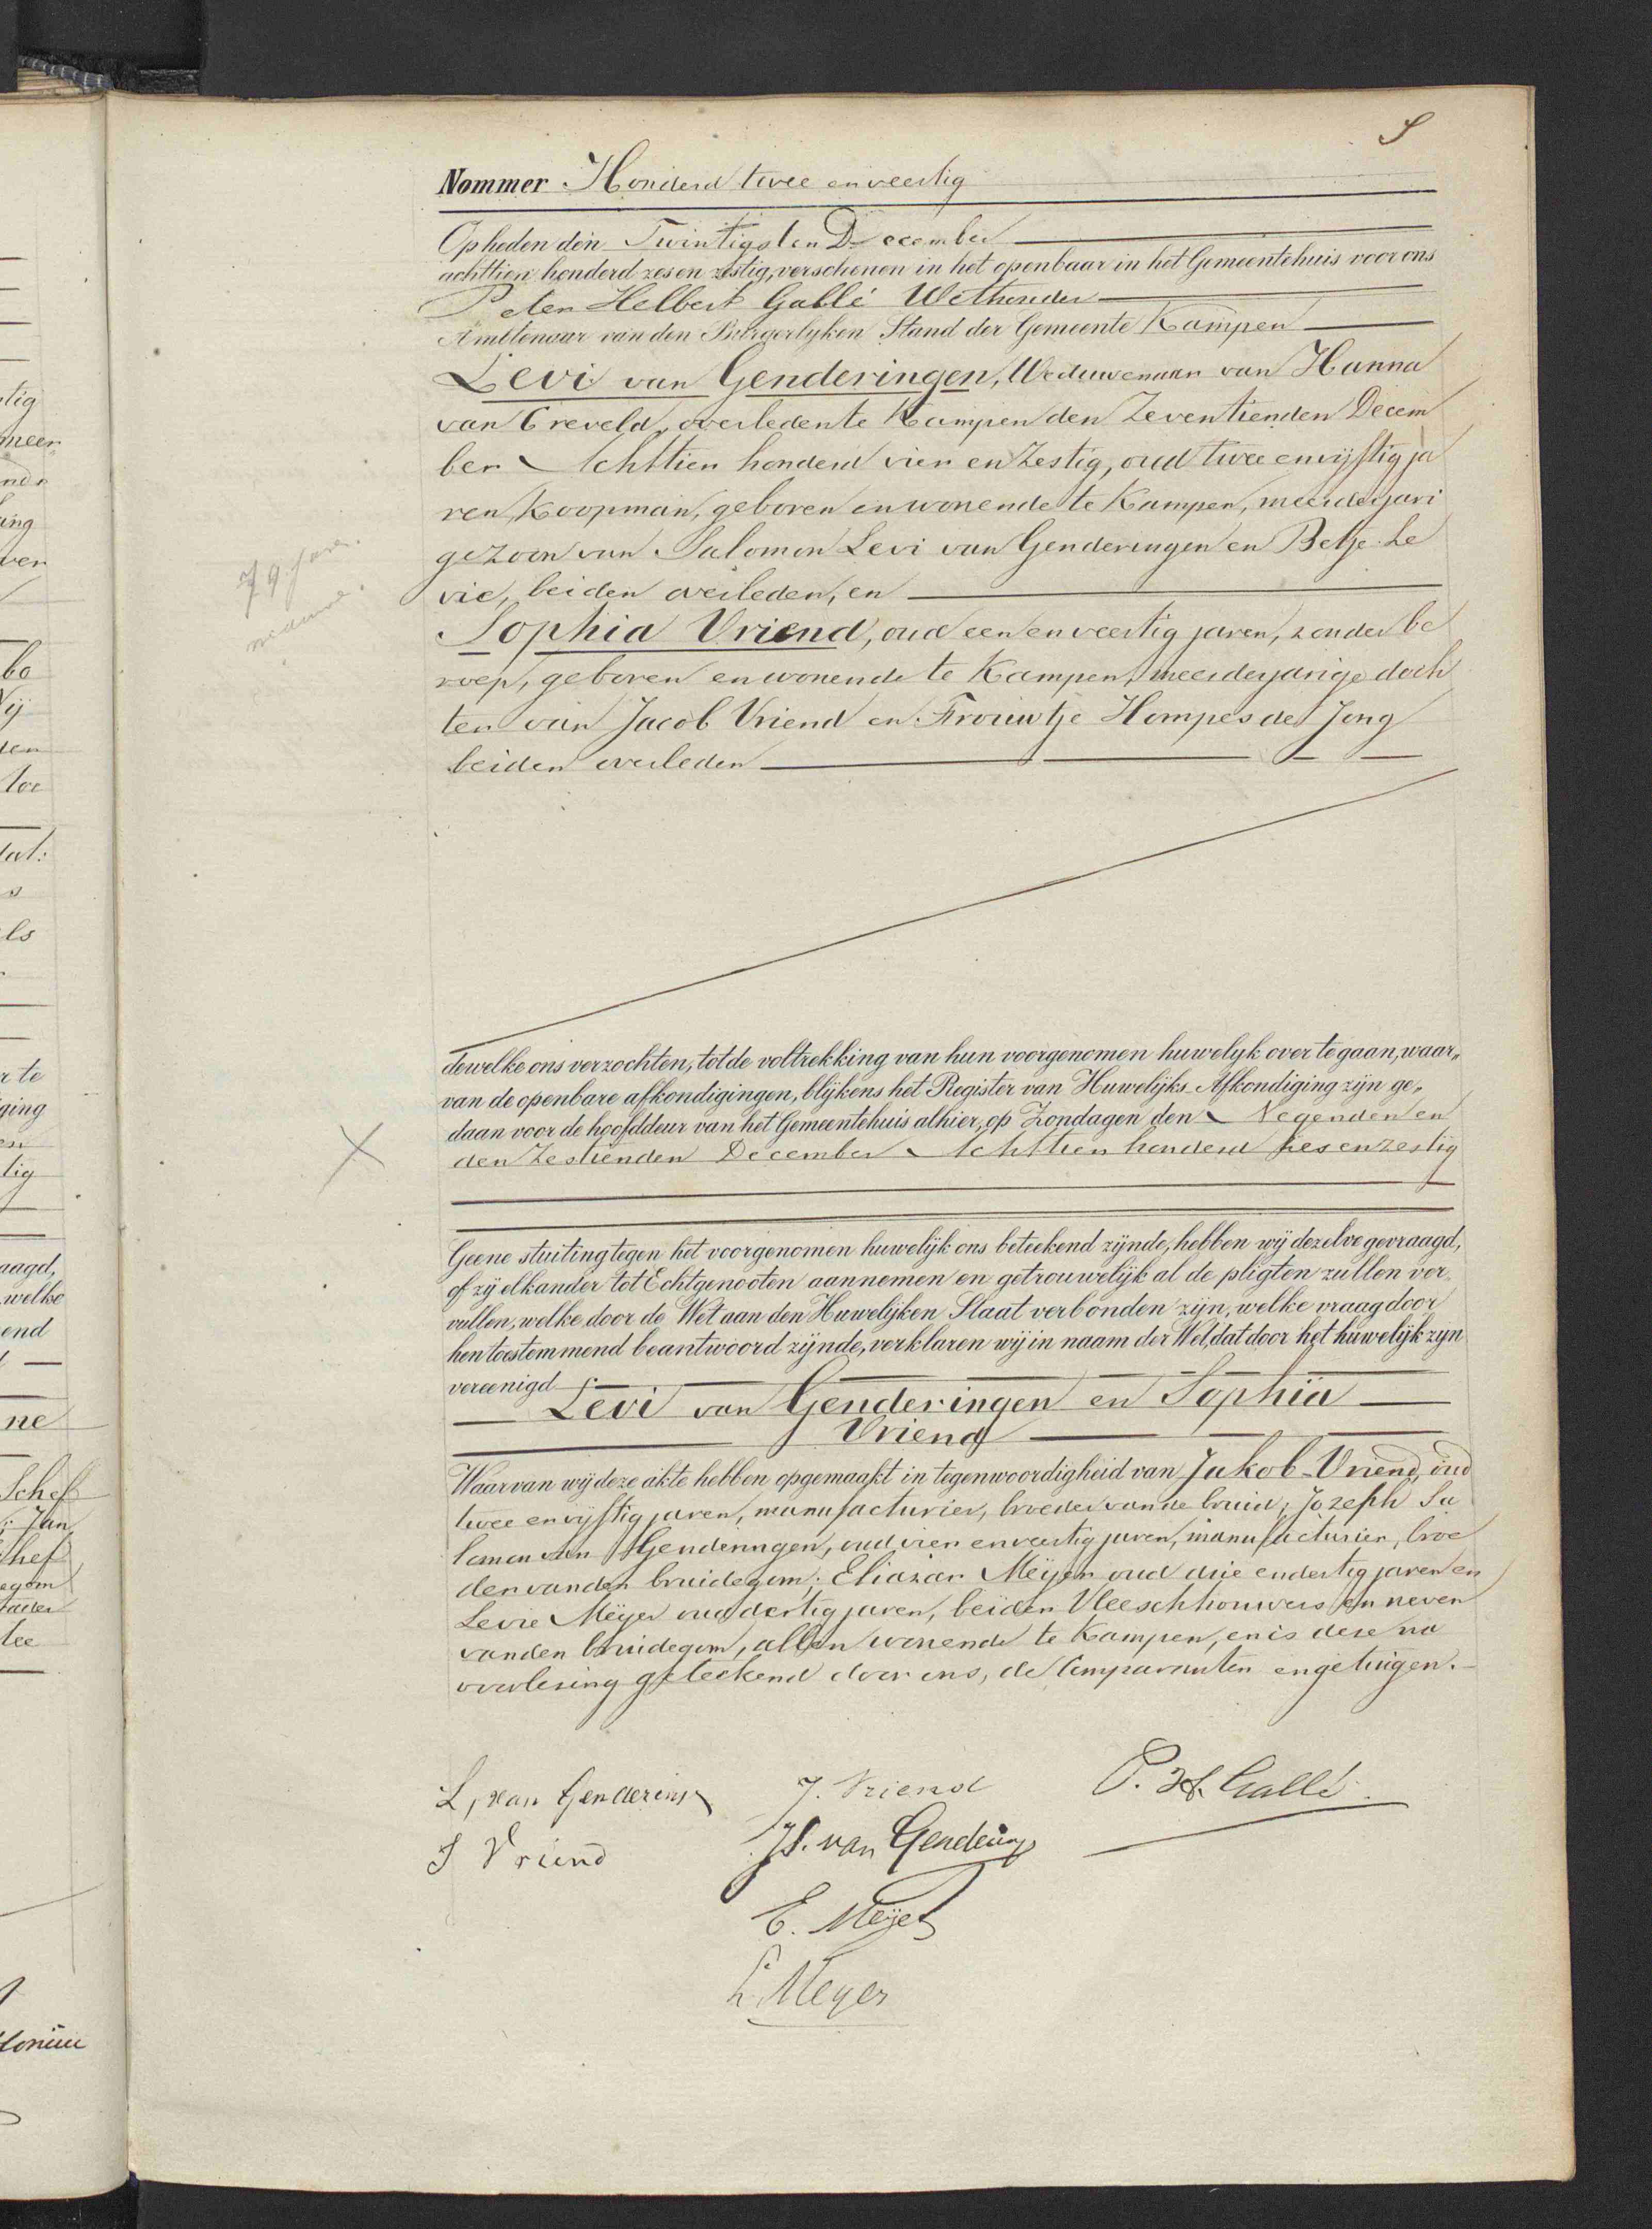 S
Nommer Honderd twee en veertig
Op heden den Twintigsten December
achttien honderd zes en zestig, verschenen in het openbaar in het Gemeentehuis voor ons
Peter Helbert Gallé Wethouder
Ambtenaar van den Burgerlyken Stand der Gemeente Kampen
Levi van Genderingen, Weduwenaar van Hanna
van Creveld, overleden te Kampen den Zeventienden Decem
ber Achttien honderd vier en Zestig, oud twee en vijftig ja
ren, Koopman, geboren en wonende te Kampen, meerderjari
ge zoon van Salomon Levi van Genderingen en Betje Le
vie, beiden overleden, en
Sophia Vriend, oud een en veertig jaren, zonder be
roep, geboren en wonende te Kampen, meerderjarige doch
ter van Jacob Vriend en Frouwtje Hompes de Jong
beiden overleden
dewelke ons verzochten, tot de voltrekking van hun voorgenomen huwelyk over te gaan, waar„
van de openbare afkondigingen, blijkens het Register van Huwelijks Afkondiging zijn ge„
daan voor de hoofddeur van het Gemeentehuis alhier, op Zondagen den Negenden en
den Zestienden December Achttien honderd zes en zestig
Geene stuiting tegen het voorgenomen huwelijk ons beteekend zijnde, hebben wij dezelve gevraagd,
of zij elkander tot Echtgenooten aannemen en getrouwelijk al de pligten zullen ver„
vullen, welke door de Wet aan den Huwelijken Staat verbonden zijn, welke vraag door
hen toestemmend beantwoord zijnde, verklaren wij in naam der Wet, dat door het huwelijk zijn
vereenigd
Levi van Genderingen en Sophia
Vriend
Waarvan wij deze akte hebben opgemaakt in tegenwoordigheid van Jakob Vriend, oud
twee en vijftig jaren, manufacturier, broeder van de bruid; Jozeph Sa
lomon van Genderingen, oud vier en veertig jaren, manufacturier, broe
der van den bruidegom; Eliazar Meijer oud drie en dertig jaren en
Levie Meijer oud dertig jaren, beiden Vleeschhouwers en neven
van den bruidegom, allen wonende te Kampen, en is deze na
voorlezing geteekend door ons, de Comparanten en getuigen.
L, van Genderingen
J. Vriend
P. H. Gallé
S Vriend
JS. van Genderingen
E. Meijer
L. Meyer